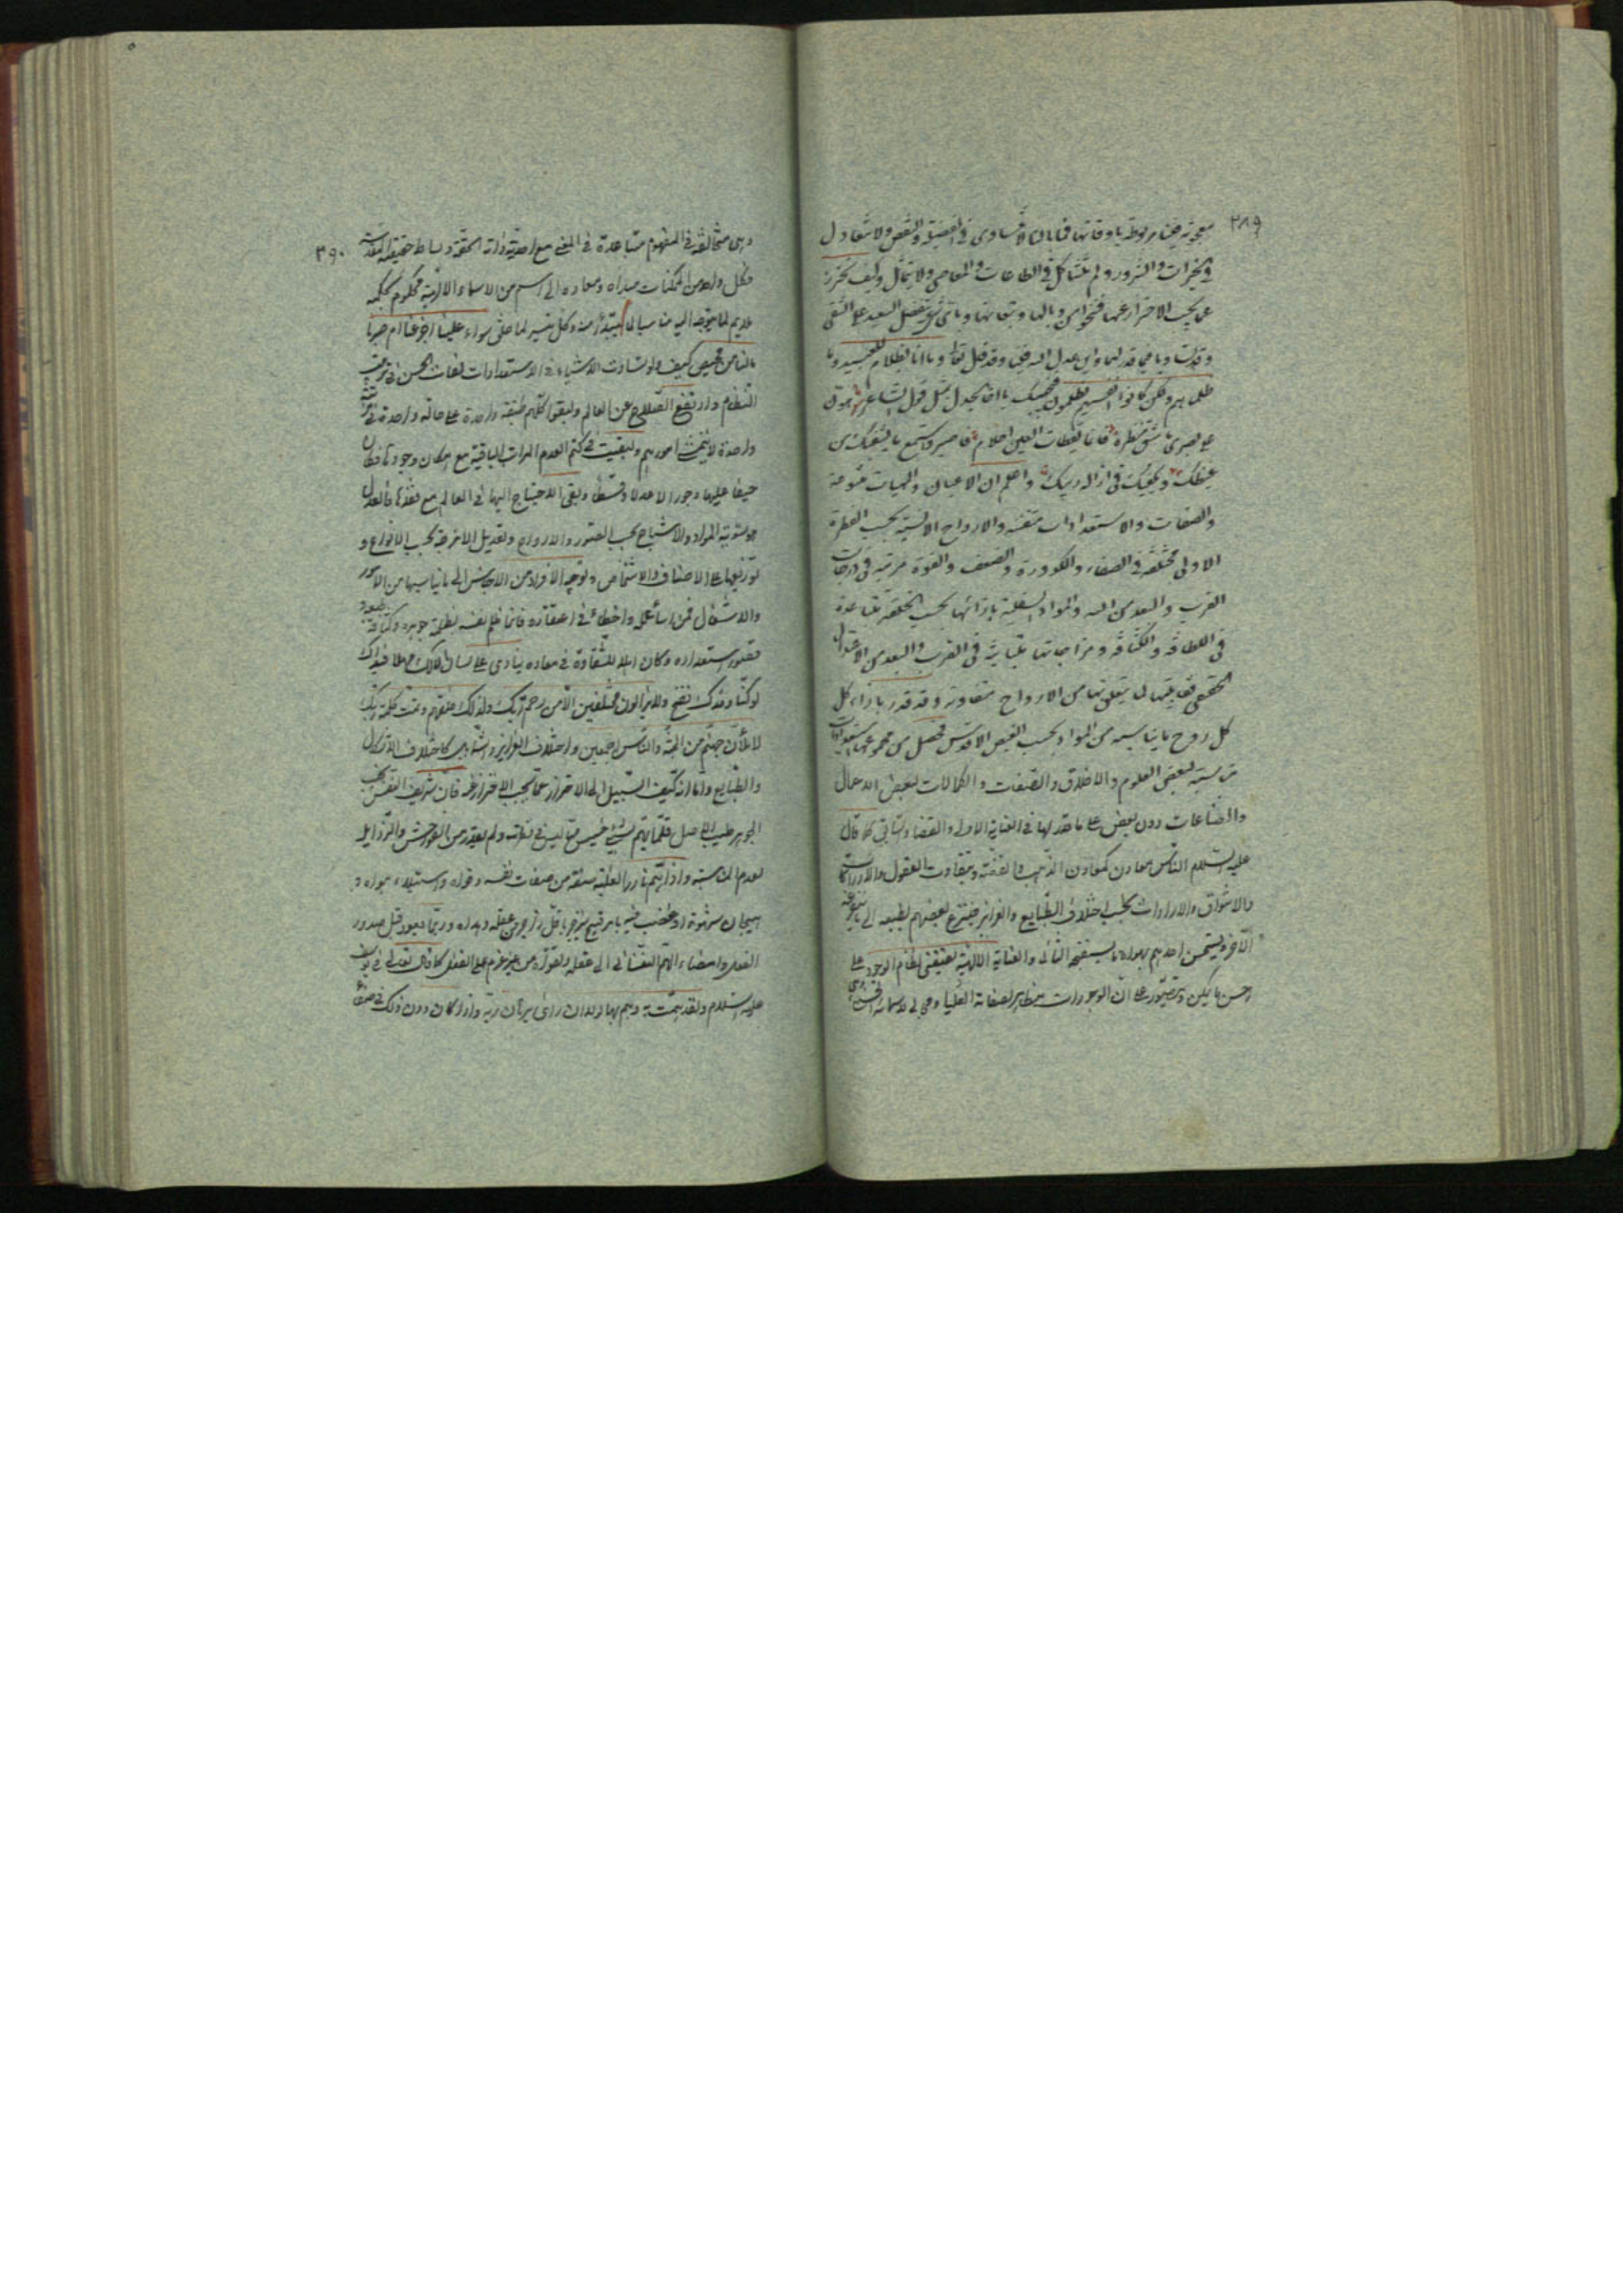 ٣٨٩
معجونة فينا مربوطة باوقاتها فما بالنا لا نتساوى فى الفضيلة والنقص ولا نتعادل
فى الخيرات والشرور ولم نتشاكل فى الطاعات والمعاصى ولا نتماثل وكيف نحترز
عما يجب الاحتراز عنها فننجوا من وبالها وتبعاتها وباى شىء يفضل السعيد على الشقى
وقد تساويا فيما قدر لهما واين عدل الله فينا وقد قال تعالى وما انا بظلام للعبيد وما
ظلمناهم ولكن كانوا انفسهم يظلمون فنجيبك يا اخا الجدل بمثل قول الشاعر هون
على بصرى ما شق منظره فانما يقظات العين احلام فاصبر واستمع ما يشفيك من
غيظك ويكفيك فى ازالة ريبك واعلم ان الاعيان والماهيات متنوعة
والصفات والاستعدادات متفننة والارواح الانسية بحسب الفطرة
الاولى مختلفة فى الصفاء والكدورة والضعف والقوة مرتبة فى درجات
القرب والبعد من الله والمواد السفلية بازائها بحسب الخلقة متباعدة
فى اللطافة والكثافة ومزاجاتها متباينة فى القرب والبعد من الاعتدال
الحقيقى فقابليتها لما يتعلق بها من الارواح متفاوتة وقد قدر بازاء كل
كل روح ما يناسبه من المواد بحسب الفيض الاقدس فحصل من مجموعهما استعدادات
مناسبة لبعض العلوم والاخلاق والصفات والكمالات لبعض الاعمال
والصناعات دون بعض على ما قدر لها فى العناية الاولى والقضاء السابق كما قال
عليه السلام الناس معادن كمعادن الذهب والفضة ويتفاوت العقول والادراكات
والاشواق والارادات بحسب اختلاف الطبايع والغرايز فينزع بعضهم بطبعه الى ما ينفر عنه
الآخر ويستحسن احدهم بهواه ما يستقبحه الثانى والعناية الالهية تقتضى نظام الوجود على
احسن ما يمكن وتيقن على ان الوجودات مظاهر لصفاته العليا ومجالى لاسمائه الحسنى
٣٩٠
وهى متخالفة فى المفهوم متباعدة فى المعنى مع احدية ذاته الحقة وبساطة حقيقته المقدسة
فكل واحد من الممكنات مبداه ومعاده الى اسم من الاسماء الالهية محكوم بحكمه
ملايم لما يتوجه اليه مناسبا لما يبتدأ منه وكل ميسر لما خلق سواء علينا اجزعنا ام صبرنا
مالنا من محيص كيف ولو تساوت الاشياء فى الاستعدادات لفات الحسن فى ترتيب
النظام وارتفع الصلاح عن العالم ولبقوا كلهم طبقة واحدة على حالة واحدة فى مرتبة
واحدة لا يتمشى امورهم ولبقيت فى كتم العدم المراتب الباقية مع امكان وجودها فكان
حيفا عليها وجورا لا عدلا وقسطا وبقى الاحتياج اليها فى العالم مع فقدها فالعدل
هو تسوية المواد والاشباح بحسب الصور والارواح وتعديل الامزجة بحسب الانواع و
توزيعها على الاصناف والاشخاص وتوجيه الافراد من الاجناس الى ما يناسبها من الامور
والاشغال فمن اساء عمله واخطأ فى اعتقاده فانما ظلم نفسه بظلمة جوهره وكثافة
قصور استعداده وكان اهلا للشقاوة فى معاده ينادى على لسان المالك
اوكتا وفوك نفخ ولا يزالون مختلفين الا من رحم ربك ولذلك خلقهم وتمت كلمة ربك
لاملأن جهنم من الجنة والناس اجمعين واختلاف الغرايز والشمايل كاختلاف الاشكال
والطبايع واما انه كيف السبيل الى الاحتراز عما يجب الاحتراز عنه فان شريف النفس نجيب
الجوهر طيب الاصل قلما يهم بشىء خسيس مما ليس فى فطرته ولم يقدر من الفواحش والرذايل
لعدم المناسبة واذا يهم نادرا لغلبة صفة من صفات نفسه وقواه واستيلاء هواه و
هيجان شهوة او غضب فيه بامر قبيح ينزجر باقل زاجر من عقله وهداه وربما يعود قبل صدور
الفعل وامضاء الهم النفسانى الى عقله وتقواه من غير عزم على الفعل كما قال تعالى فى يوسف
عليه السلام ولقد همت به وهم بها لولا ان راى برهان ربه واذا كان دون ذلك فى صفاء